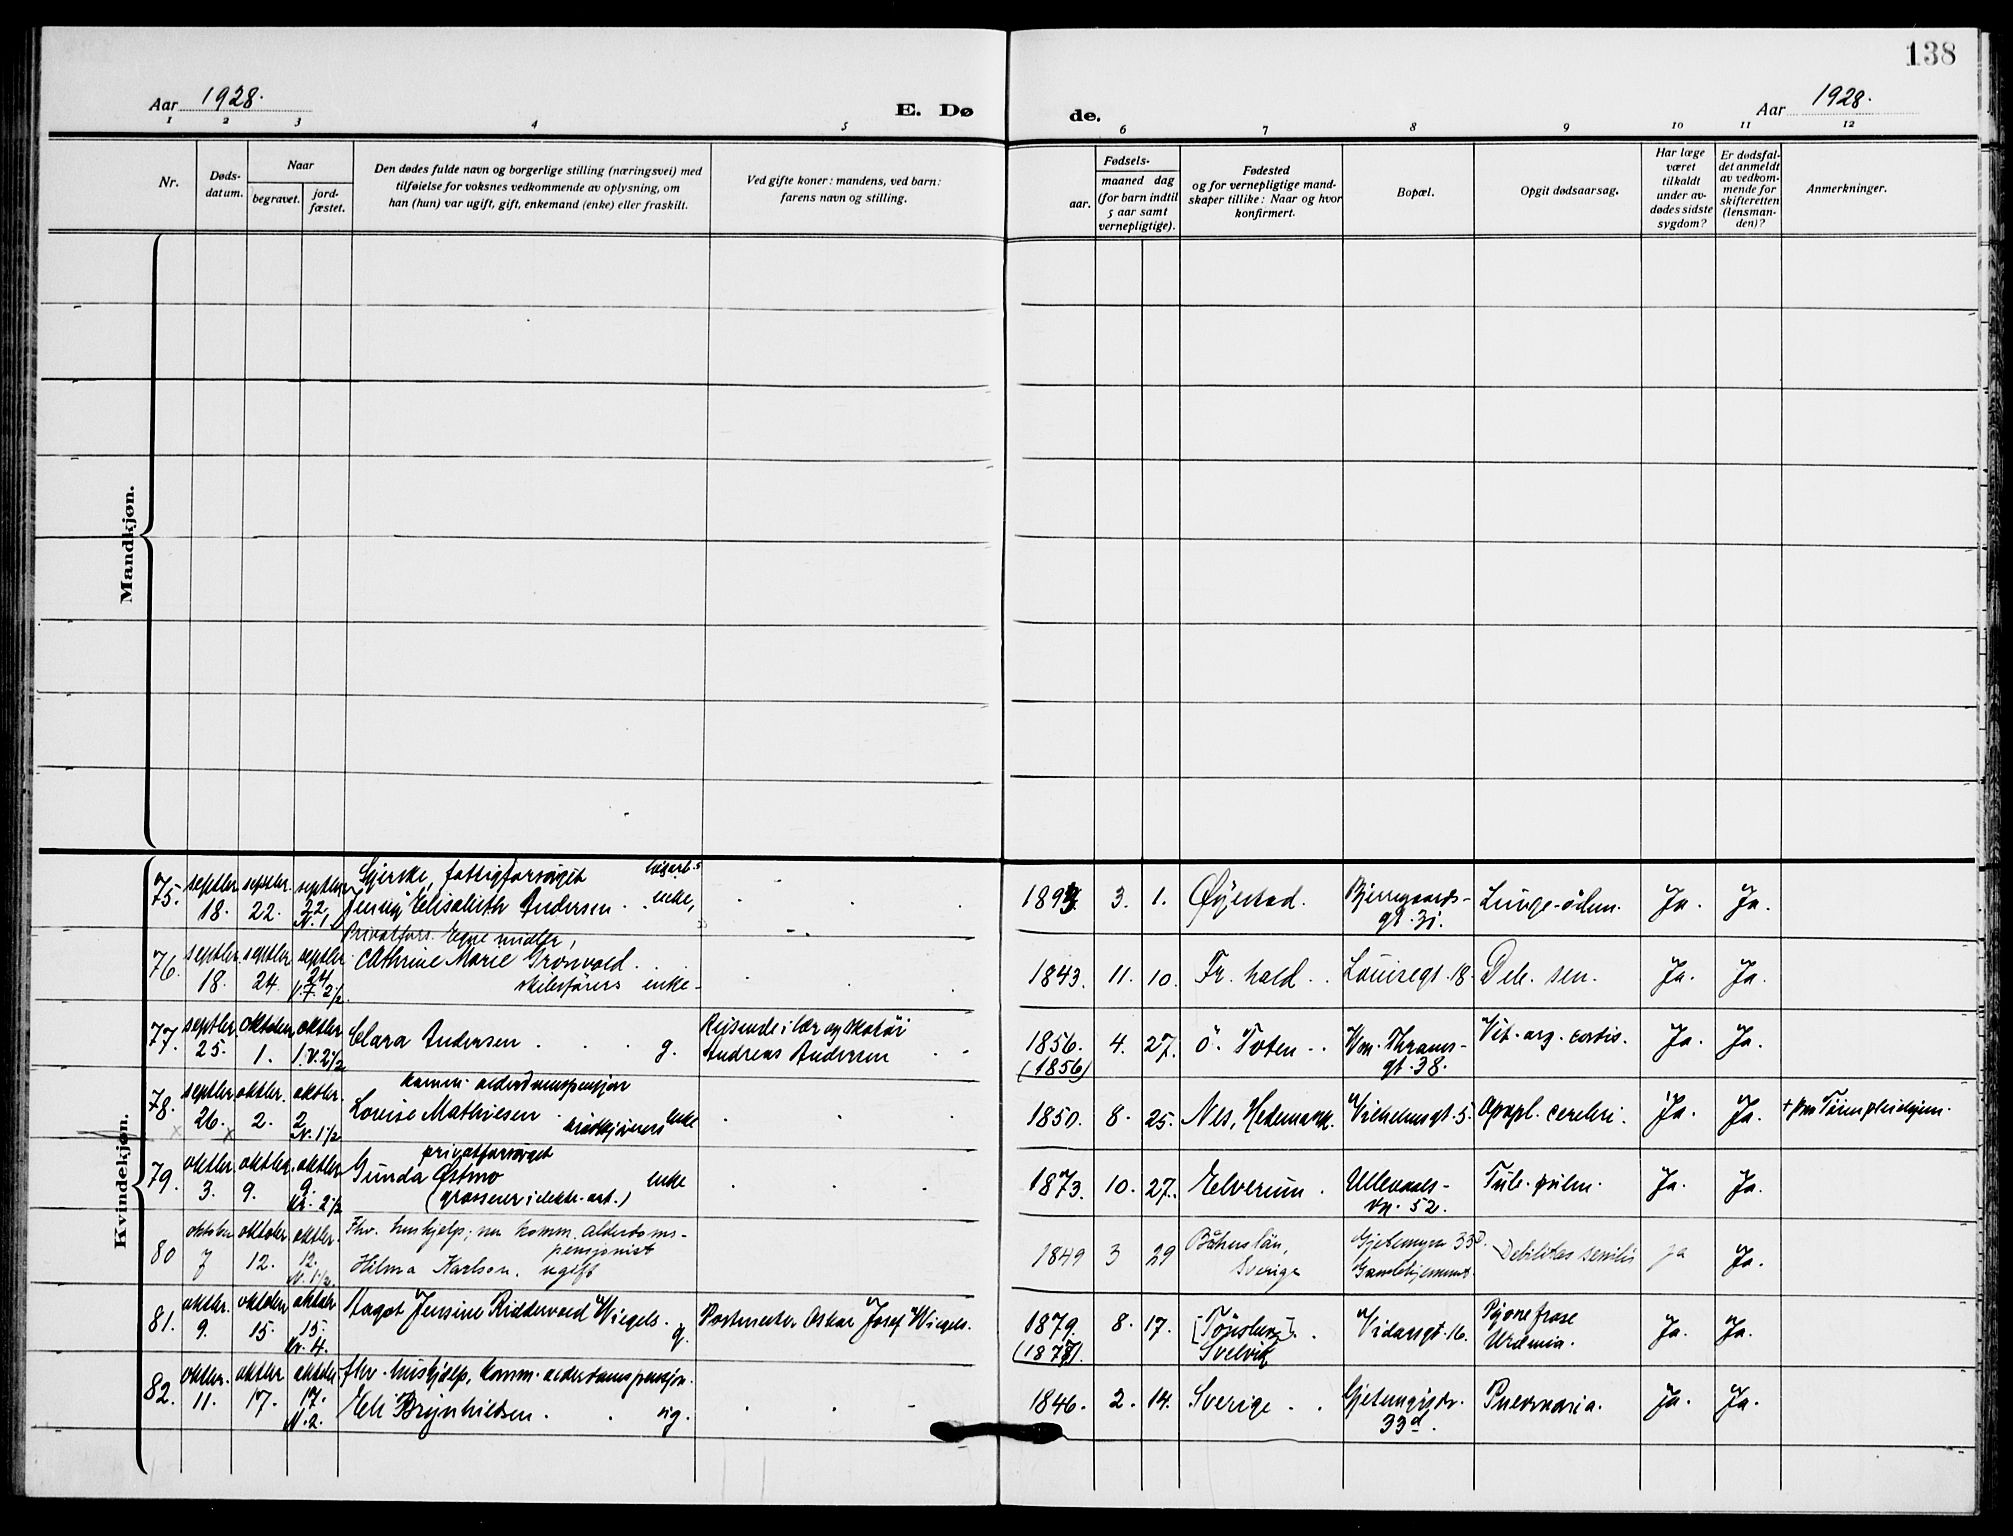 138
Aar 1928.
E. Døde.
Aar 1928.
1 2 3 4 5 6 7 8 9 10 11 12
Nr.
Døds-
datum.
Naar
begravet.
jord-
fæstet.
Den dødes fulde navn og borgerlige stilling (næringsvei) med
tilføielse for voksnes vedkommende av oplysning, om
han (hun) var ugift, gift, enkemand (enke) eller fraskilt.
Ved gifte koner: mandens, ved barn:
farens navn og stilling.
Fødsels-
aar.
maaned dag
(for barn indtil
5 aar samt
vernepligtige).
Fødested
og for vernepligtige mand-
skaper tillike: Naar og hvor
konfirmert.
Bopæl.
Opgit dødsaarsag.
Har læge
været
tilkaldt
under av-
dødes sidste
sygdom?
Er dødsfal-
det anmeldt
av vedkom-
mende for
skifteretten
(lensman-
den)?
Anmerkninger.
Mandkjøn.
Kvindekjøn.
75. septbr. 18. septbr. 22. septbr. 22. N. 1
fattigforsørget
Jenny Elisabeth Andersen. enke,
3. 1. Øyestad. Bjerregaards-
gt. 31.
Lunge-ödem. Ja. Ja.
76. septbr. 18. septbr. 24. septbr. 24 V. F. 2 1/2
Privatfors. Egne midler,
Cathrine Marie Grønvold.
skibsførers enke
1843. 11. 10. Fr. hald. Louisegt. 18. Deb. sen. Ja. Ja.
77. septbr. 25. oktober 1. oktbr. 1. V. 2 1/2
Clara Andersen g.
Reisende i lær og skotøi
Andreas Andersen
1856. (1856) 4. 27. Ö. Toten. Wm. Thranes-
gt. 38.
Vit. org. cordis. Ja. Ja.
78. septbr. 26. oktbr. 2. oktbr. 2 N. 1 1/2
komm. alderdomspensjon
Louise Mathiesen enke
1850. 8. 25. Nes, Hedemark. Vilhelmsgt. 5. Apopl. cerebri. Ja. Ja.
79. oktbr. 3. oktbr. 9. oktbr. 9. Kr. 2 1/2
privatforsørget
Gunda Østmo enke
(grosserer i elektr. art.)
1873. 10. 27. Elverum. Ullevaals-
vn. 52.
Tub. pulm. Ja. Ja.
80 oktober 7 oktober 12. oktbr. 12. N. 1 1/2.
Fhv. hushjelp, nu komm. alderdoms-
pensjonist
Hilma Karlson. ugift
1849 3 29 Båhuslän,
Sverige
Gjetemyrv. 33d.
Gamlehjemmet.
Debilitas senilis ja Ja.
81. oktbr. 9. oktober 15. oktober 15. Kr. 4.
Aagot Jensine Riddervold Wiegels. g.
Postmester Oskar Josef Wiegels.
1879. (1877). 8. 17. [Tönsberg].
Svelvik
Vidarsgt. 16. Pyonefrose
Urämia. Ja. Ja.
82. oktbr. 11. oktbr. 17. oktober 17. N. 2.
fhv. hushjelp, komm. alderdomspensjon.
Eli Brynhildsen. ug.
1846. 2. 14. Sverige. Gjetemyrv.
33d.
Pneumonia. Ja. Ja.